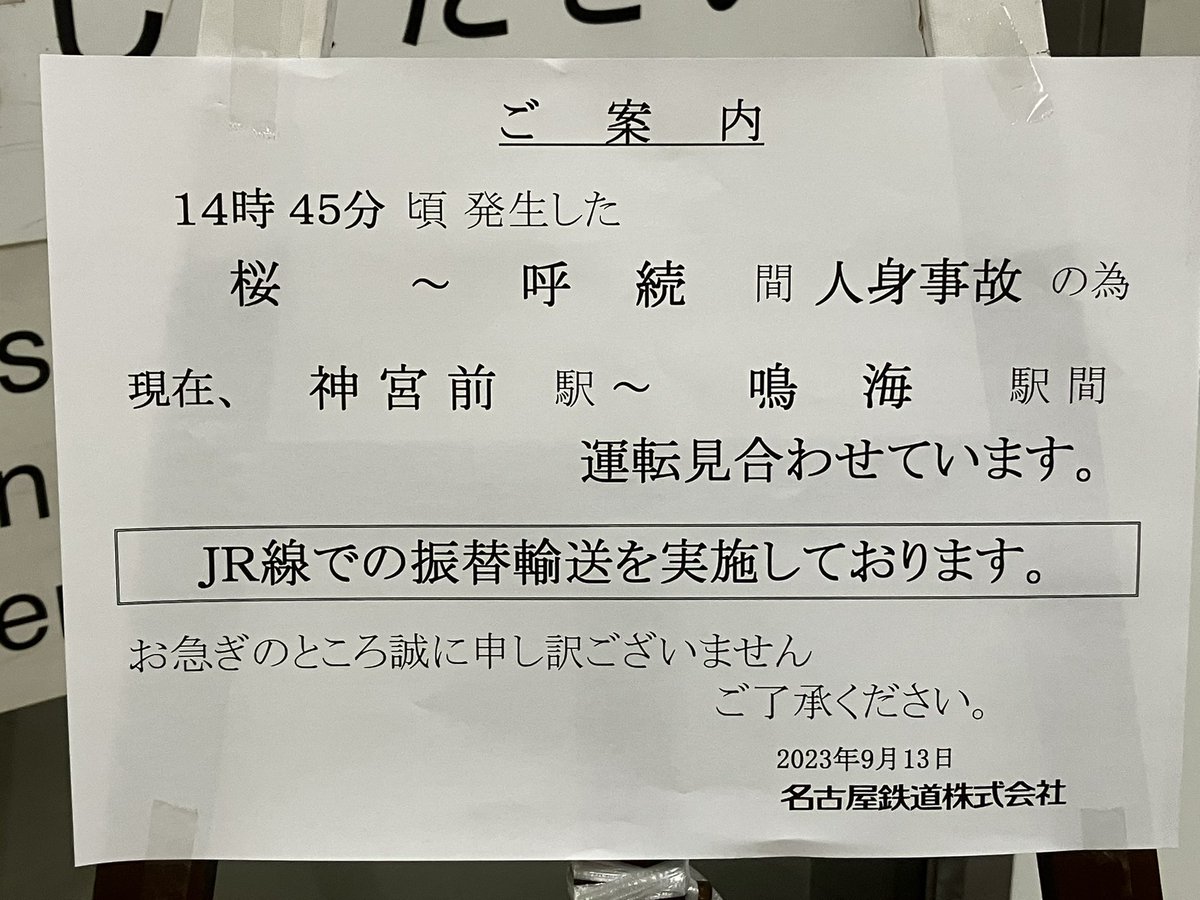 ください
ご案内
14時45分頃発生した
桜～呼続間人身事故の為
現在、神宮前駅～鳴海駅間
運転見合わせています。
JR線での振替輸送を実施しております。
お急ぎのところ誠に申し訳ございません
ご了承ください。
2023年9月13日
名古屋鉄道株式会社